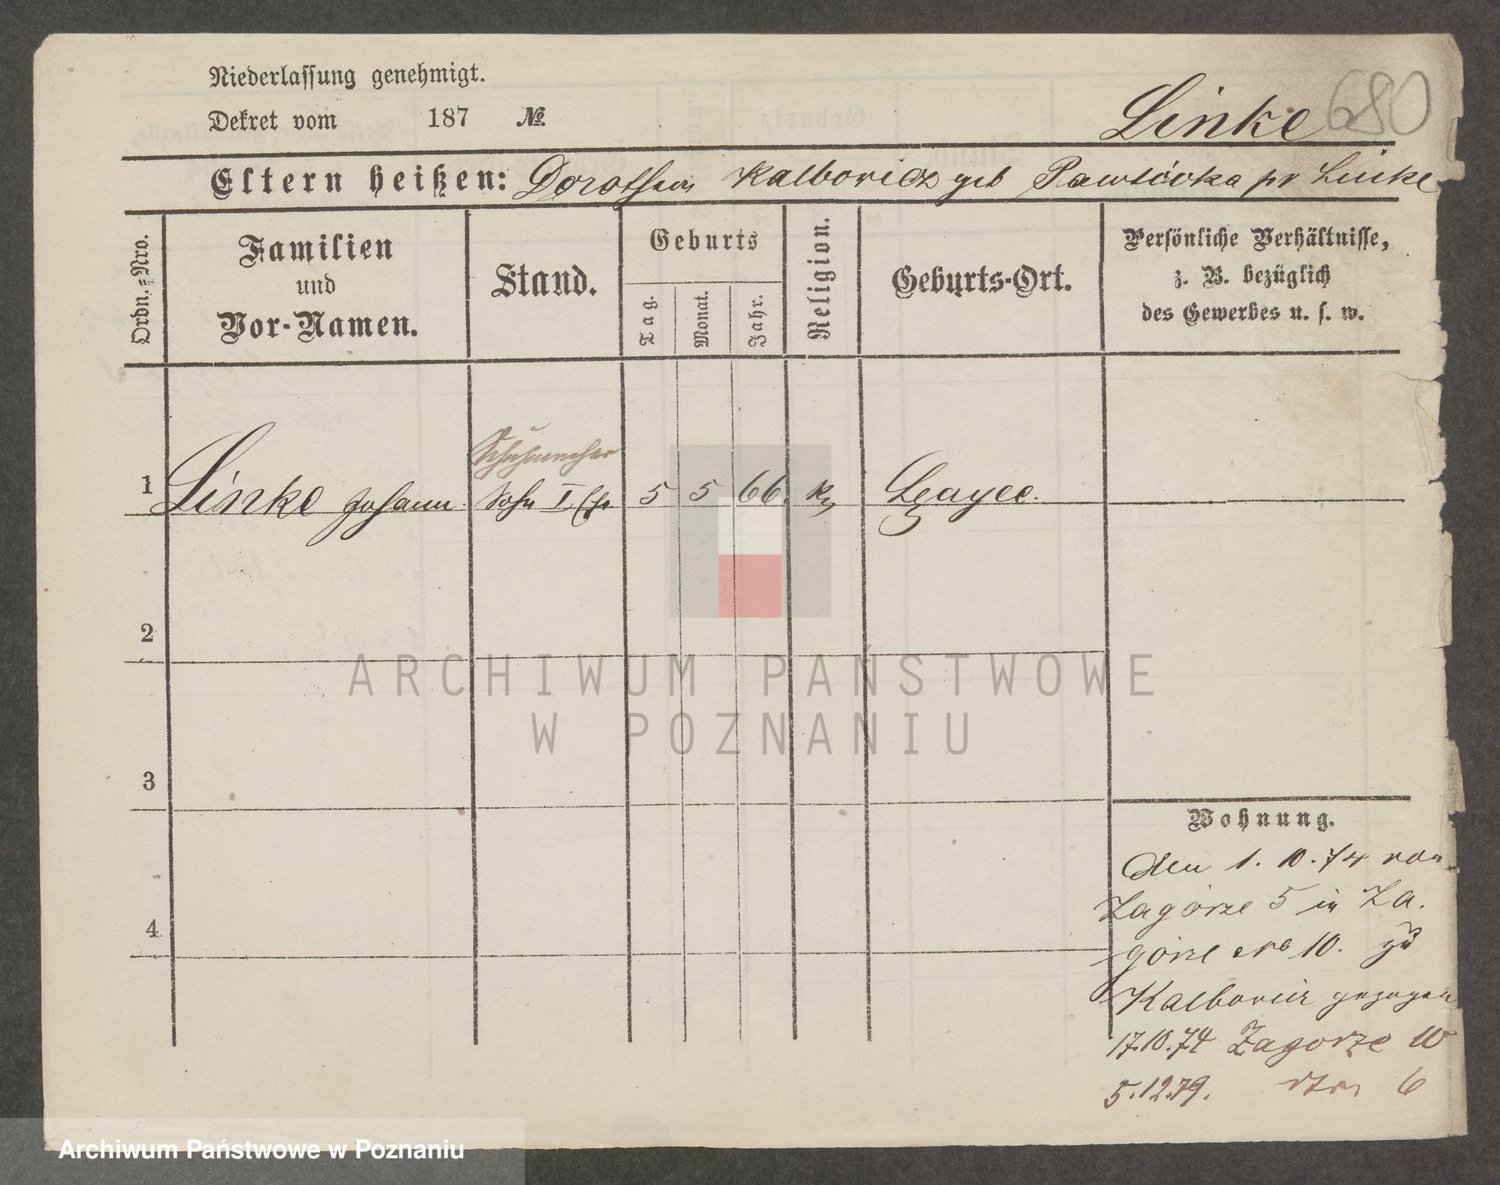 Niederlassung genehmigt.
Dekret vom 187 №
Linke 680
Eltern heißen: Dorothea Kalbowicz geb Pawlówka pr Linke
Ordn.=Nro.
Familien
und
Vor-Namen.
Stand.
Geburts
Tag.
Monat.
Jahr.
Religion.
Geburts-Ort.
Persönliche Verhältnisse,
z. B. bezüglich
des Gewerbes u. s. w.
Schuhmacher
1 Linke Johann Sohn I. Ehe 5 5 66. k
2
3
4
Wohnung.
Den 1. 10. 74 von
Zagórze 5 in Za.
górze No 10. zu
Kalbowicz gezogen
17.10.74 Zagorze 10
5.12.79. 6
ARCHIWUM PAŃSTWOWE
W POZNANIU
Archiwum Państwowe w Poznaniu